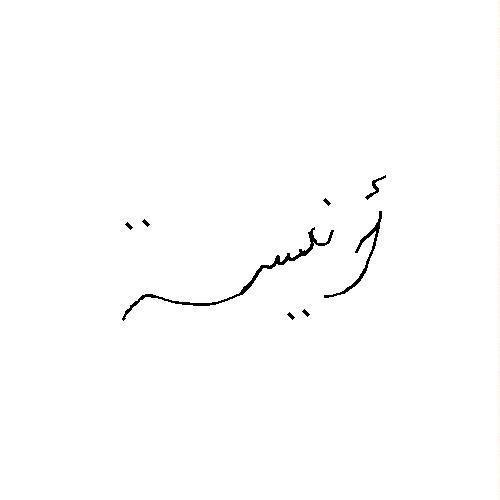 أونيسة